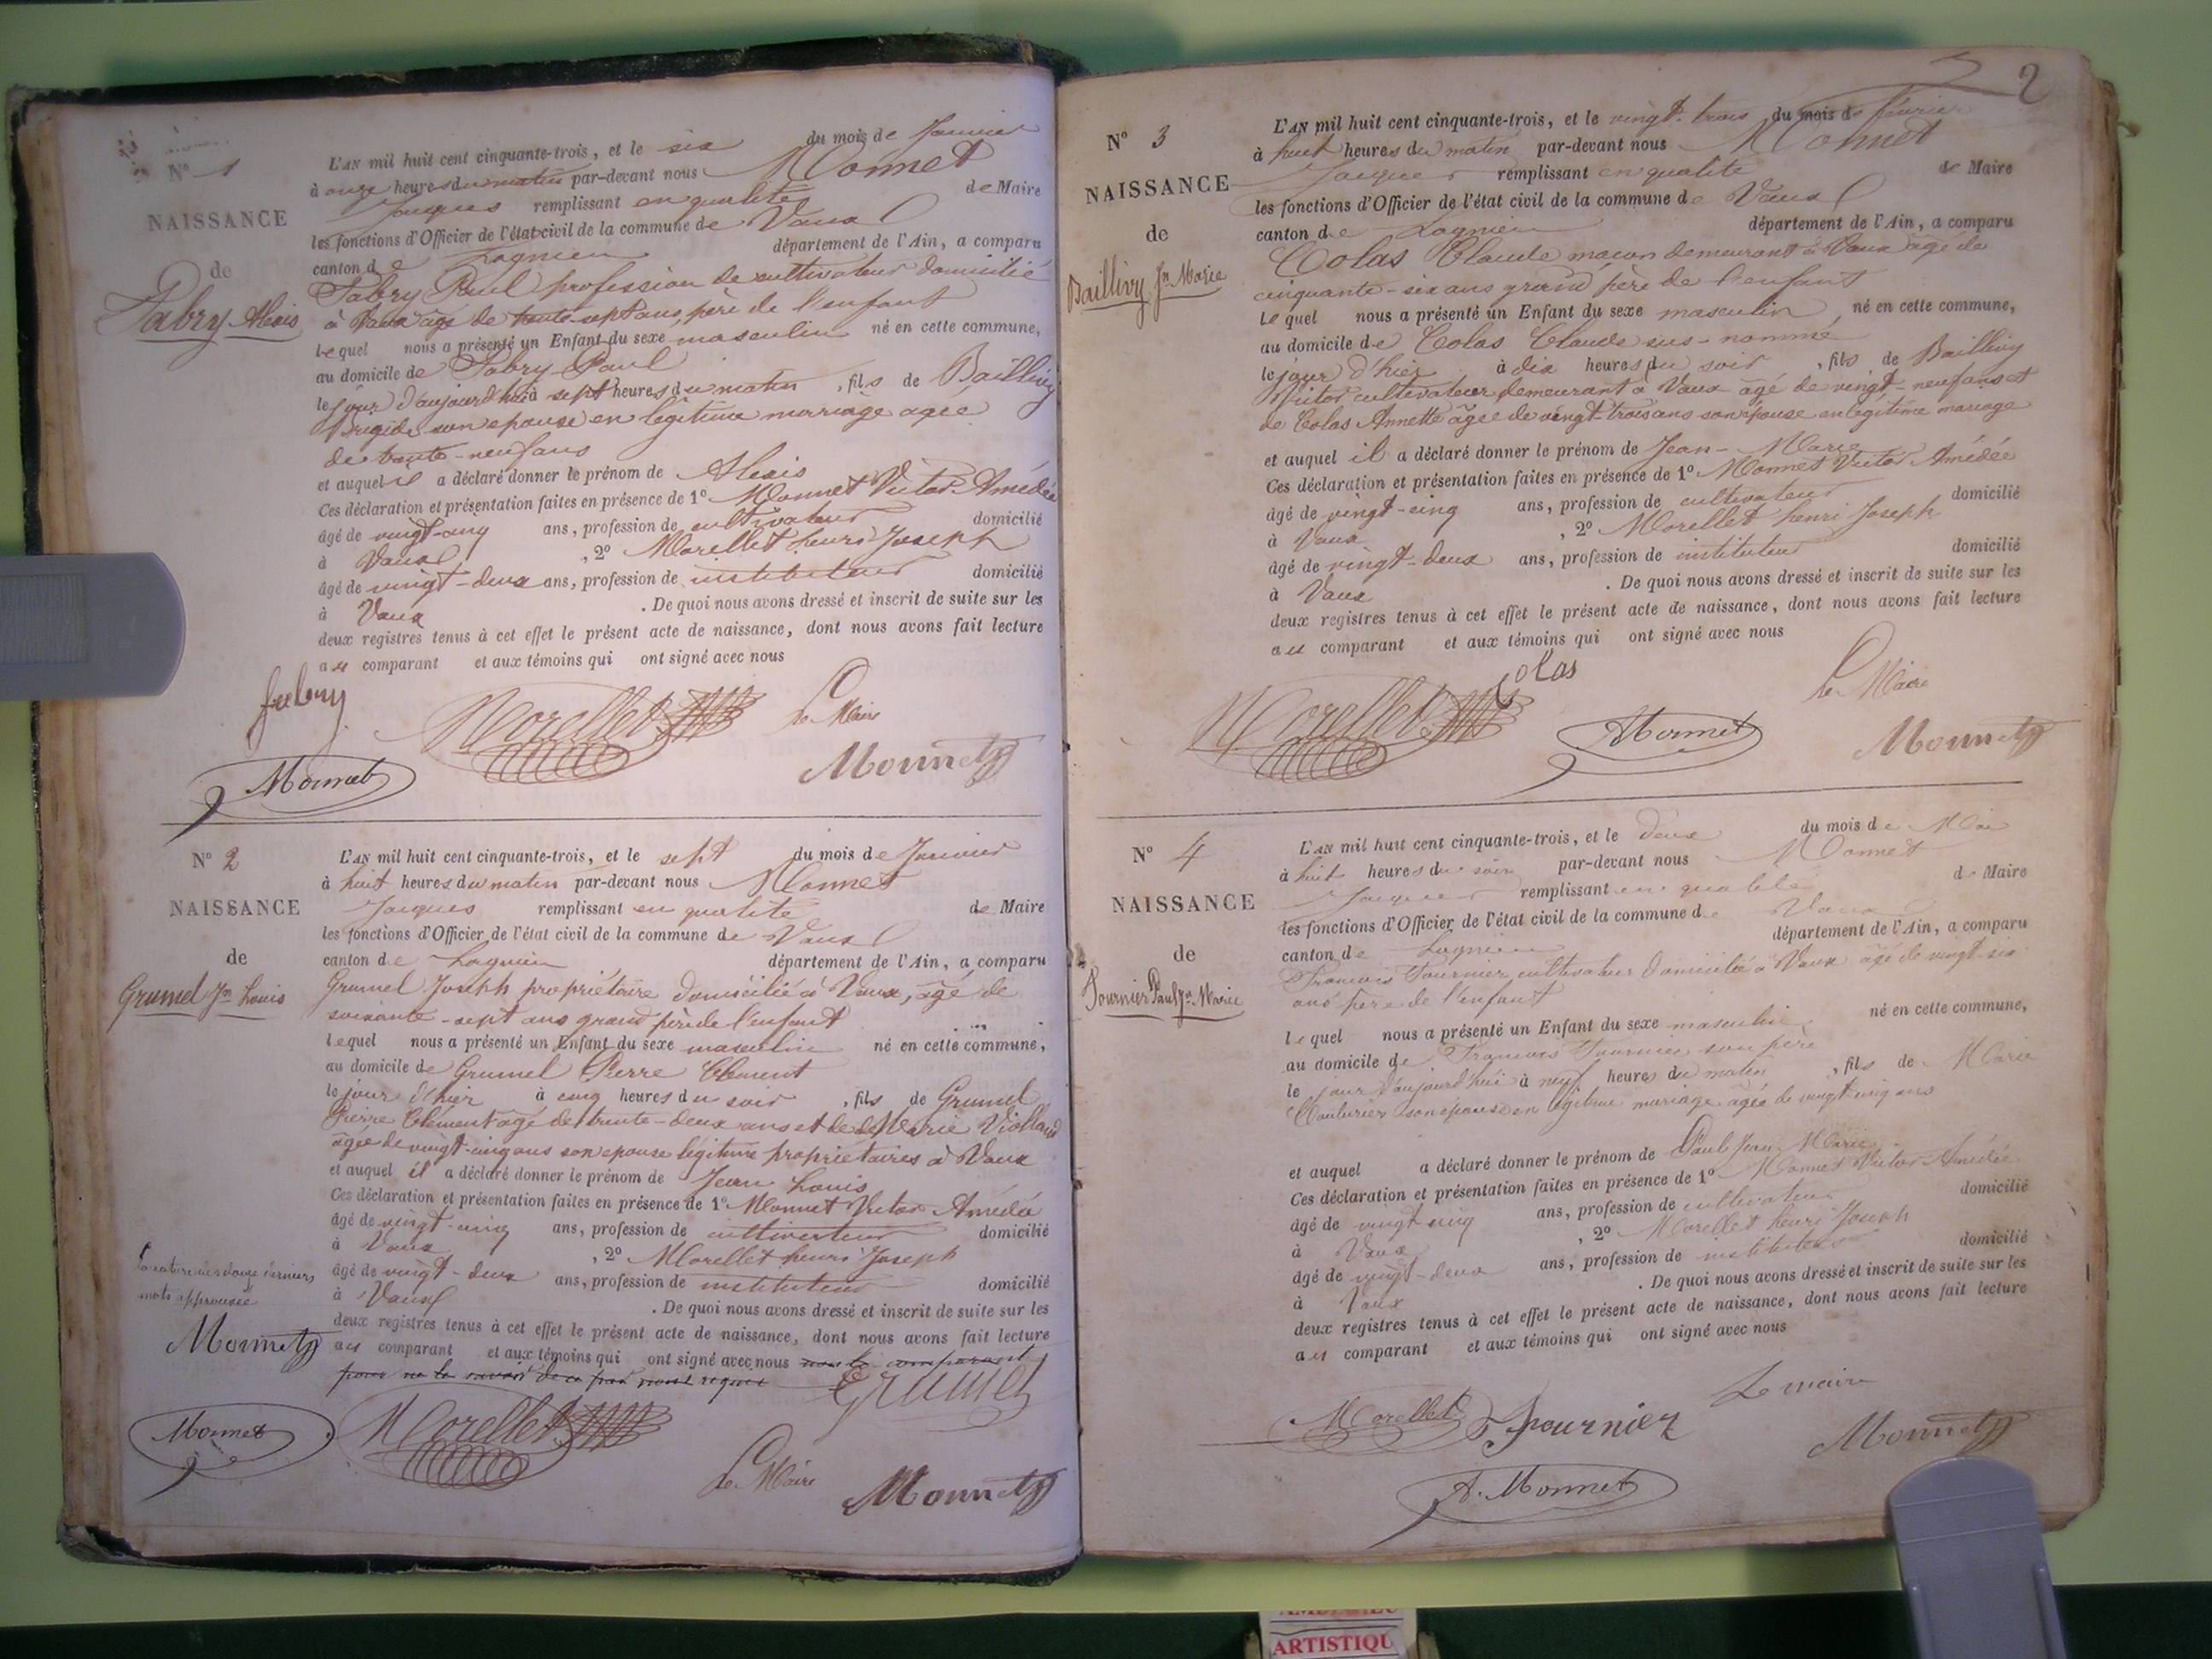 N° 1
NAISSANCE
de
Fabry Alexis
L'AN mil huit cent cinquante-trois, et le six du mois de Janvier
à onze heures du matin par-devant nous Monnet
Jacques remplissant en qualité de Maire
les fonctions d'Officier de l'état civil de la commune de Vaux
canton de Lagnieu département de l'Ain, a comparu
Fabry Paul profession de cultivateur domicilié
à Vaux âgé de trente-sept ans, père de l'enfant
lequel nous a présenté un Enfant du sexe masculin né en cette commune,
au domicile de Fabry Paul
le jour d'aujourd'hui à sept heures du matin, fils de Baillivy
Brigide son epouse en legitime marriage agée
de trente-neuf ans
et auquel il a déclaré donner le prénom de Alexis
Ces déclaration et présentation faites en présence de 1° Monnet Victor Amédée
âgé de vingt-cinq ans, profession de cultivateur domicilié
à Vaux, 2° Morellet henri Joseph
âgé de vingt-deux ans, profession de instituteur domicilié
à Vaux. De quoi nous avons dressé et inscrit de suite sur les
deux registres tenus à cet effet le présent acte de naissance, dont nous avons fait lecture
au comparant et aux témoins qui ont signé avec nous
fabry
Morellet
Le Maire
Monnet
Monnet
N° 2
NAISSANCE
de
Grumel Jn Louis
L'AN mil huit cent cinquante-trois, et le sept du mois de Janvier
à huit heures du matin par-devant nous Monnet
Jacques remplissant en qualité de Maire
les fonctions d'Officier de l'état civil de la commune de Vaux
canton de Lagnieu département de l'Ain, a comparu
Grumel Joseph propriétaire domicilié à Vaux, âgé de
soixante-sept ans grand père de l'enfant
lequel nous a présenté un Enfant du sexe masculin né en cette commune,
au domicile de Grumel Pierre Clement
le jour d'hier à cinq heures du soir, fils de Grumel
Pierre Clément âgé de trente-deux ans et de de Marie Violland
agée de vingt-cinq ans son epouse légitime propriétaires à Vaux
et auquel il a déclaré donner le prénom de Jean Louis
Ces déclaration et présentation faites en présence de 1° Monnet Victor Amédée
âgé de vingt-cinq ans, profession de cultivateur domicilié
à Vaux, 2° Morellet henri Joseph
âgé de vingt-deux ans, profession de instituteur domicilié
à Vaux. De quoi nous avons dressé et inscrit de suite sur les
deux registres tenus à cet effet le présent acte de naissance, dont nous avons fait lecture
au comparant et aux témoins qui ont signé avec nous non le comparant
pour ne le savoir de ce par nous requis
La rature des douze derniers
mots approuvée
Monnet
Grumel
Monnet
Morellet
Le Maire
Monnet
2
N° 3
NAISSANCE
de
Baillivy Jn Marie
L'AN mil huit cent cinquante-trois, et le vingt-trois du mois de février
à huit heures du matin par-devant nous Monnet
Jacques remplissant en qualité de Maire
les fonctions d'Officier de l'état civil de la commune de Vaux
canton de Lagnieu département de l'Ain, a comparu
Colas Claude maçon demeurant à Vaux âgé de
cinquante-six ans grand père de l'enfant
lequel nous a présenté un Enfant du sexe masculin, né en cette commune,
au domicile de Colas Claude sus-nommé
le jour d'hier à dix heures du soir, fils de Baillivy
Victor cultivateur demeurant à Vaux âgé de vingt-neuf ans et
de Colas Annette âgée de vingt-trois ans son épouse en légitime mariage
et auquel il a déclaré donner le prénom de Jean-Marie
Ces déclaration et présentation faites en présence de 1° Monnet Victor Amédée
âgé de vingt-cinq ans, profession de cultivateur domicilié
à Vaux, 2° Morellet henri Joseph
âgé de vingt-deux ans, profession de instituteur domicilié
à Vaux. De quoi nous avons dressé et inscrit de suite sur les
deux registres tenus à cet effet le présent acte de naissance, dont nous avons fait lecture
au comparant et aux témoins qui ont signé avec nous
Colas
Le Maire
Morellet
AMonnet
Monnet
N° 4
NAISSANCE
de
Fournier Paul Jn Marie
L'AN mil huit cent cinquante-trois, et le deux du mois de Mai
à huit heures du soir par-devant nous Monnet
Jacques remplissant en qualité de Maire
les fonctions d'Officier de l'état civil de la commune de Vaux
canton de Lagnieu département de l'Ain, a comparu
François Fournier cultivateur domicilié à Vaux âgé de vingt-six
ans père de l'enfant
lequel nous a présenté un Enfant du sexe masculin né en cette commune,
au domicile de François Fournier son père
le jour d'aujourd'hui à neuf heures du matin, fils de Marie
Couturier son épouse en légitime mariage agée de vingt-cinq ans
et auquel a déclaré donner le prénom de Paul Jean Marie
Ces déclaration et présentation faites en présence de 1° Monnet Victor Amédée
âgé de vingt cinq ans, profession de cultivateur domicilié
à Vaux, 2° Morellet henri Joseph
âgé de vingt-deux ans, profession de instituteur domicilié
à Vaux. De quoi nous avons dressé et inscrit de suite sur les
deux registres tenus à cet effet le présent acte de naissance, dont nous avons fait lecture
au comparant et aux témoins qui ont signé avec nous
Le maire
Morellet
fournier
Monnet
A. Monnet
ARTISTIQU